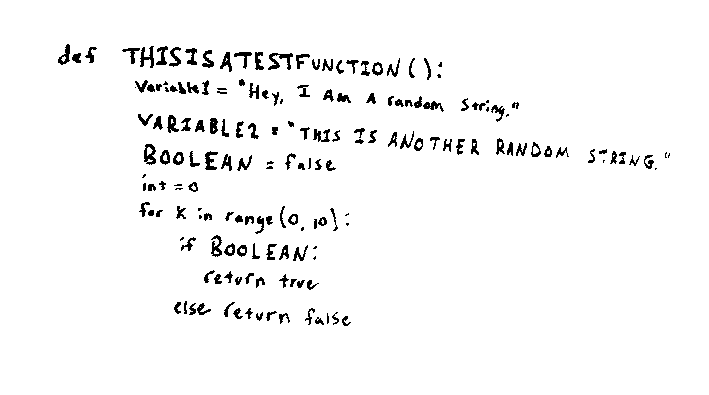 def THISISATESTFUNCTION():
Variable1 = "Hey, I Am A random String."
VARIABLE2 = "THIS IS ANOTHER RANDOM STRING."
BOOLEAN = false
int = 0
for K in range(0, 10):
if BOOLEAN:
return true
else return false